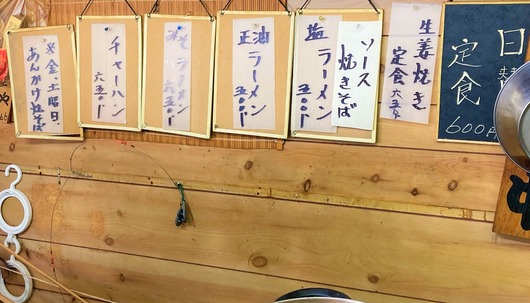 日替
定食
600円
生姜焼き
定食 六五〇
ソース
焼きそば
塩ラーメン
五〇〇円
正油ラーメン
五〇〇円
みそラーメン
六五〇円
チャーハン
六五〇円
※金・土曜日
あんかけ焼そば